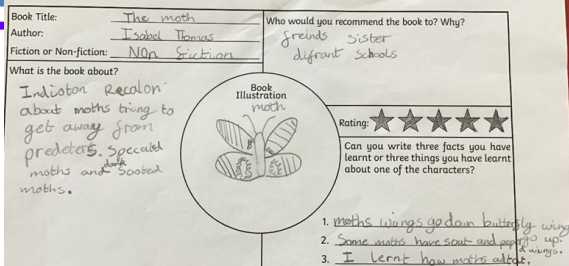 Book Title: The moth
Author: Isabel Thomas
Fiction or Non-fiction: Non fiction
What is the book about?
Indiston Recalon
about moths triung to
get away from
predeters. Speculed
moths and dark Sooted
moths.
Book
Illustration
moth
Who would you recommend the book to? Why?
freinds sister
difrant schools
Rating:
Can you write three facts you have
learnt or three things you have learnt
about one of the characters?
1. moths wings go down butterfly wing
go up.
2. Some moths have and wings.
3. I lernt how moths